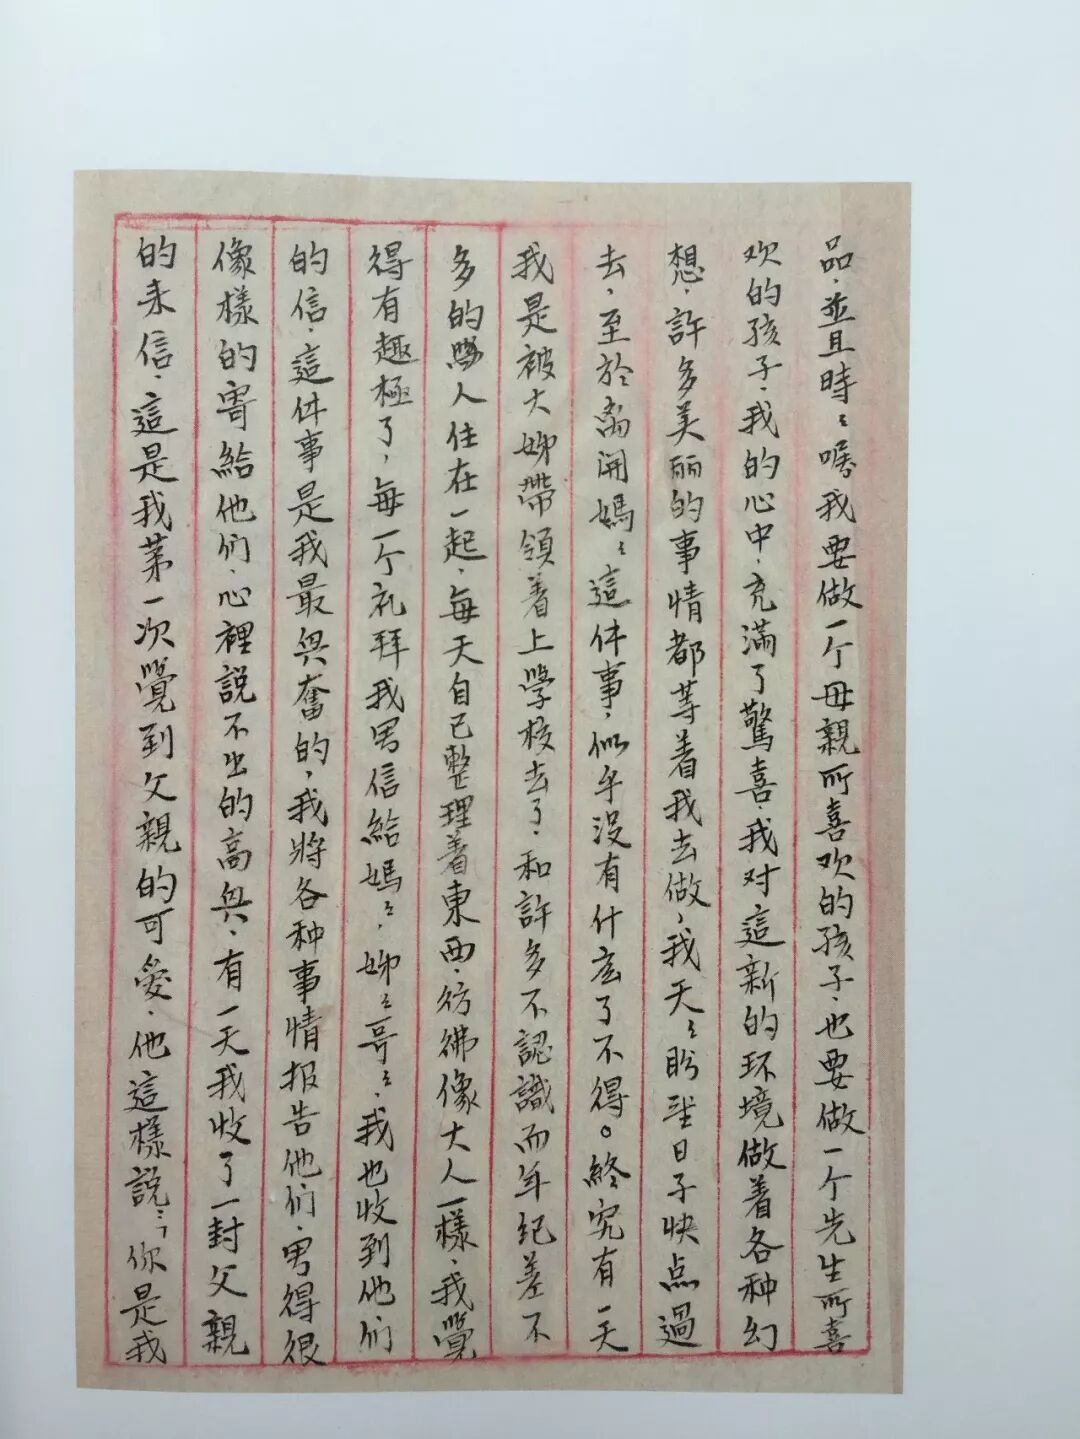 品，並且時〻嘱我要做一个母親所喜欢的孩子，也要做一个先生所喜
欢的孩子，我的心中，充滿了驚喜，我对這新的环境做着各种幻
想，許多美丽的事情都等着我去做，我天〻盼望日子快点過
去，至於离開媽〻這件事，似乎没有什麽了不得。終究有一天
我是被大姊帶領着上學校去了，和許多不認識而年纪差不
多的人住在一起，每天自己整理着東西，彷彿像大人一樣，我覺
得有趣極了，每一个礼拜我写信給媽〻，姊〻哥〻，我也收到他们
的信，這件事是我最兴奮的，我將各种事情报告他们，写得很
像樣的寄給他们，心裡説不出的高兴，有一天我收了一封父親
的来信，這是我第一次覺到父親的可愛，他這樣説：「你是我